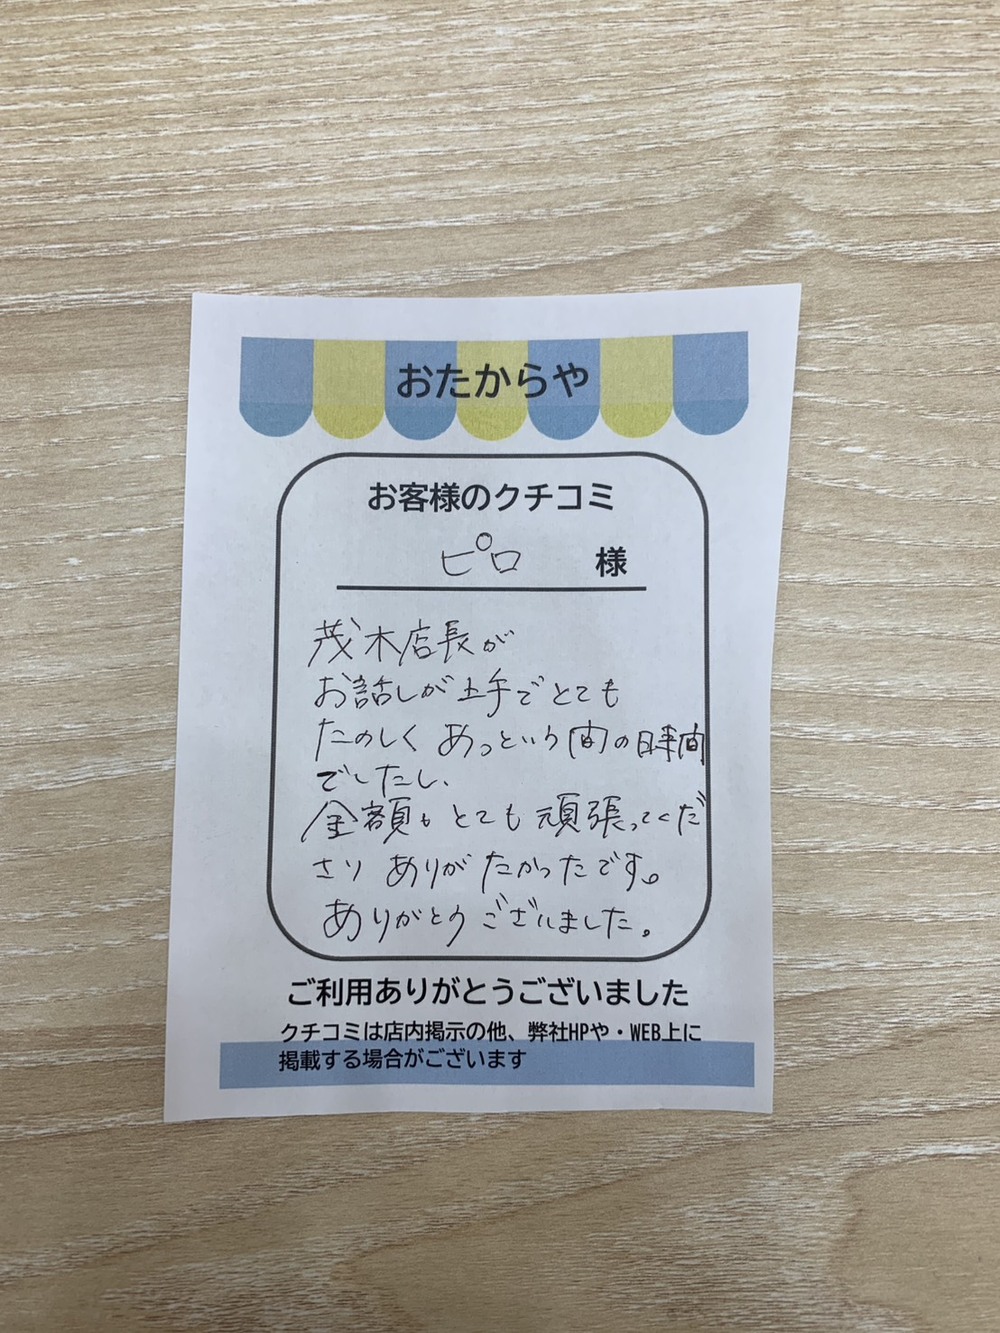 おたからや
お客様のクチコミ
ピロ 様
茂木店長が
お話しが上手でとても
たのしく あっという間の時間
でしたし、
金額もとても頑張ってくだ
さり ありがたかったです。
ありがとうございました。
ご利用ありがとうございました
クチコミは店内掲示の他、弊社HPや・WEB上に
掲載する場合がございます